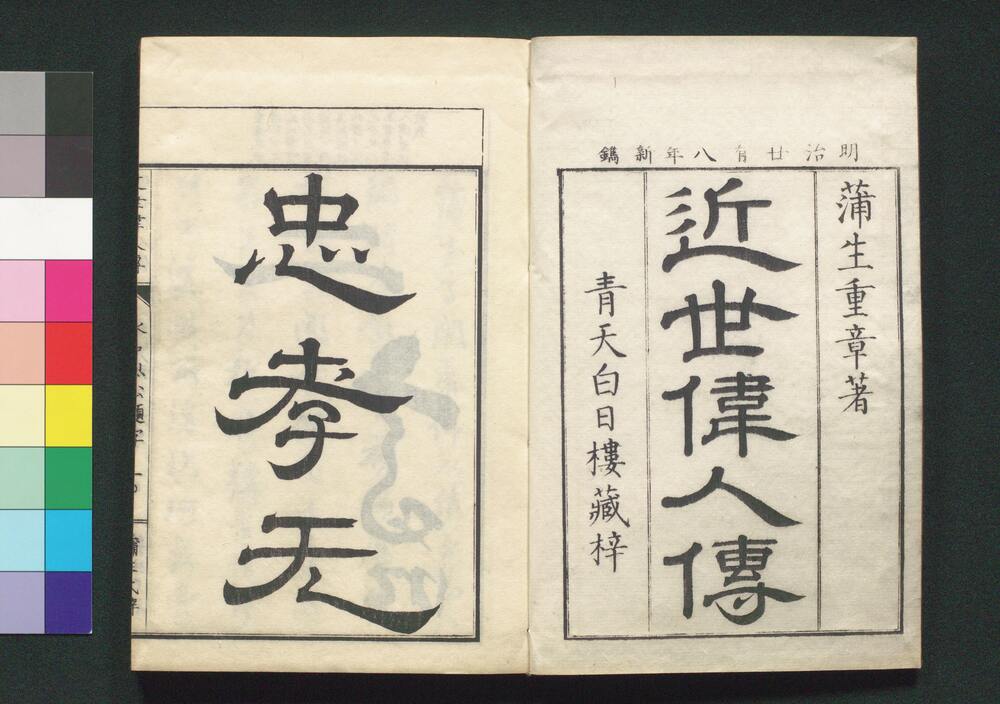 明治廿有八年新鐫
蒲生重章著
近世偉人傳
青天白日樓藏梓
忠孝天